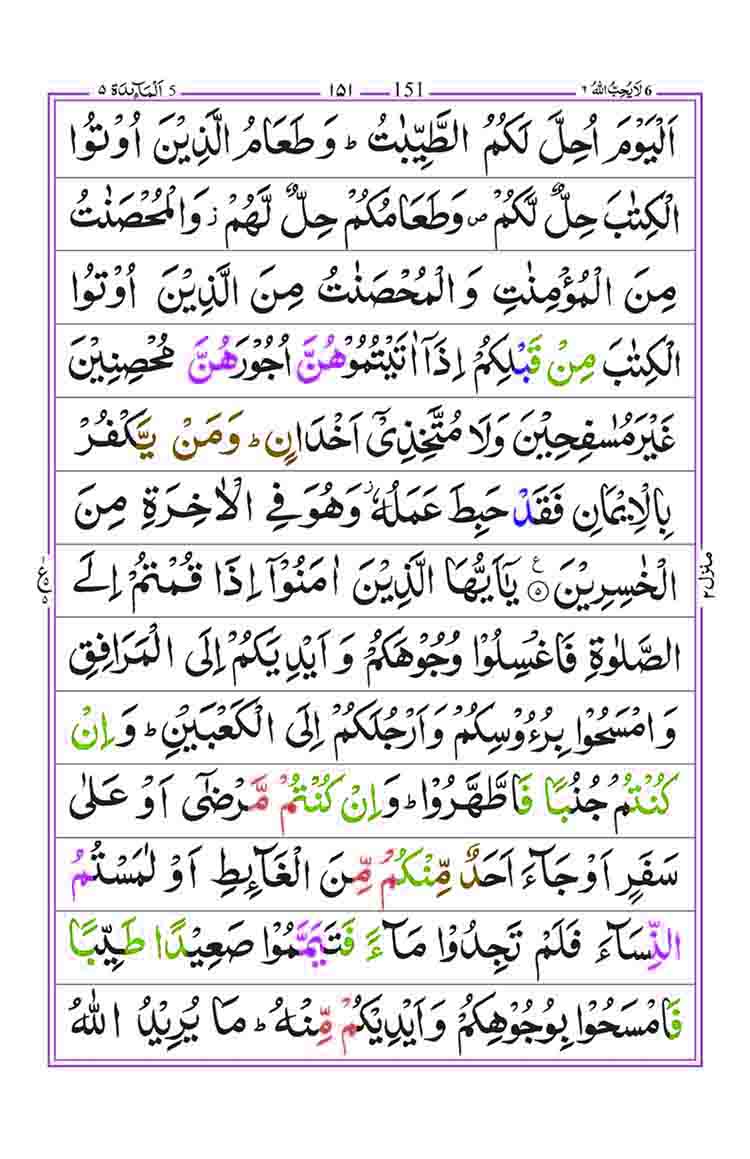 6 لَا یُحِبُّ اللّٰهُ ٦ 151 ١٥١ 5 اَلْمَآىِٕدَة ٥
اَلْیَوْمَ اُحِلَّ لَكُمُ الطَّیِّبٰتُ ؕ وَ طَعَامُ الَّذِیْنَ اُوْتُوا
الْكِتٰبَ حِلٌّ لَّكُمْ ۪ وَ طَعَامُكُمْ حِلٌّ لَّهُمْ ؗ وَ الْمُحْصَنٰتُ
مِنَ الْمُؤْمِنٰتِ وَ الْمُحْصَنٰتُ مِنَ الَّذِیْنَ اُوْتُوا
الْكِتٰبَ مِنْ قَبْلِكُمْ اِذَاۤ اٰتَیْتُمُوْهُنَّ اُجُوْرَهُنَّ مُحْصِنِیْنَ
غَیْرَ مُسٰفِحِیْنَ وَ لَا مُتَّخِذِیْۤ اَخْدَانٍ ؕ وَ مَنْ یَّكْفُرْ
بِالْاِیْمَانِ فَقَدْ حَبِطَ عَمَلُهٗ ؗ وَ هُوَ فِی الْاٰخِرَةِ مِنَ
الْخٰسِرِیْنَ ۧ۵ یٰۤاَیُّهَا الَّذِیْنَ اٰمَنُوْۤا اِذَا قُمْتُمْ اِلَی
الصَّلٰوةِ فَاغْسِلُوْا وُجُوْهَكُمْ وَ اَیْدِیَكُمْ اِلَی الْمَرَافِقِ
وَ امْسَحُوْا بِرُءُوْسِكُمْ وَ اَرْجُلَكُمْ اِلَی الْكَعْبَیْنِ ؕ وَ اِنْ
كُنْتُمْ جُنُبًا فَاطَّهَّرُوْا ؕ وَ اِنْ كُنْتُمْ مَّرْضٰۤی اَوْ عَلٰی
سَفَرٍ اَوْ جَآءَ اَحَدٌ مِّنْكُمْ مِّنَ الْغَآىِٕطِ اَوْ لٰمَسْتُمُ
النِّسَآءَ فَلَمْ تَجِدُوْا مَآءً فَتَیَمَّمُوْا صَعِیْدًا طَیِّبًا
فَامْسَحُوْا بِوُجُوْهِكُمْ وَ اَیْدِیْكُمْ مِّنْهُ ؕ مَا یُرِیْدُ اللّٰهُ
منزل ٢
ع